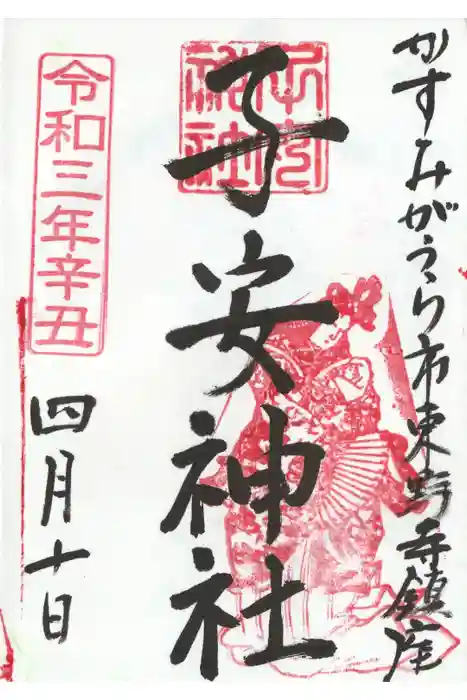 かすみがうら市東野寺鎮座
子安神社
子安神社
令和三年辛丑
四月十日